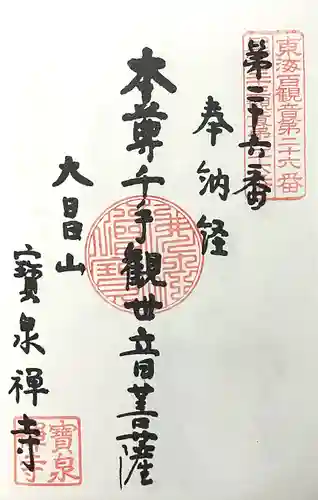 東海百観音第二十六番
第二十六番
奉納経
本尊千手観世音菩薩
大日山
寳泉禅寺
寳泉禅寺